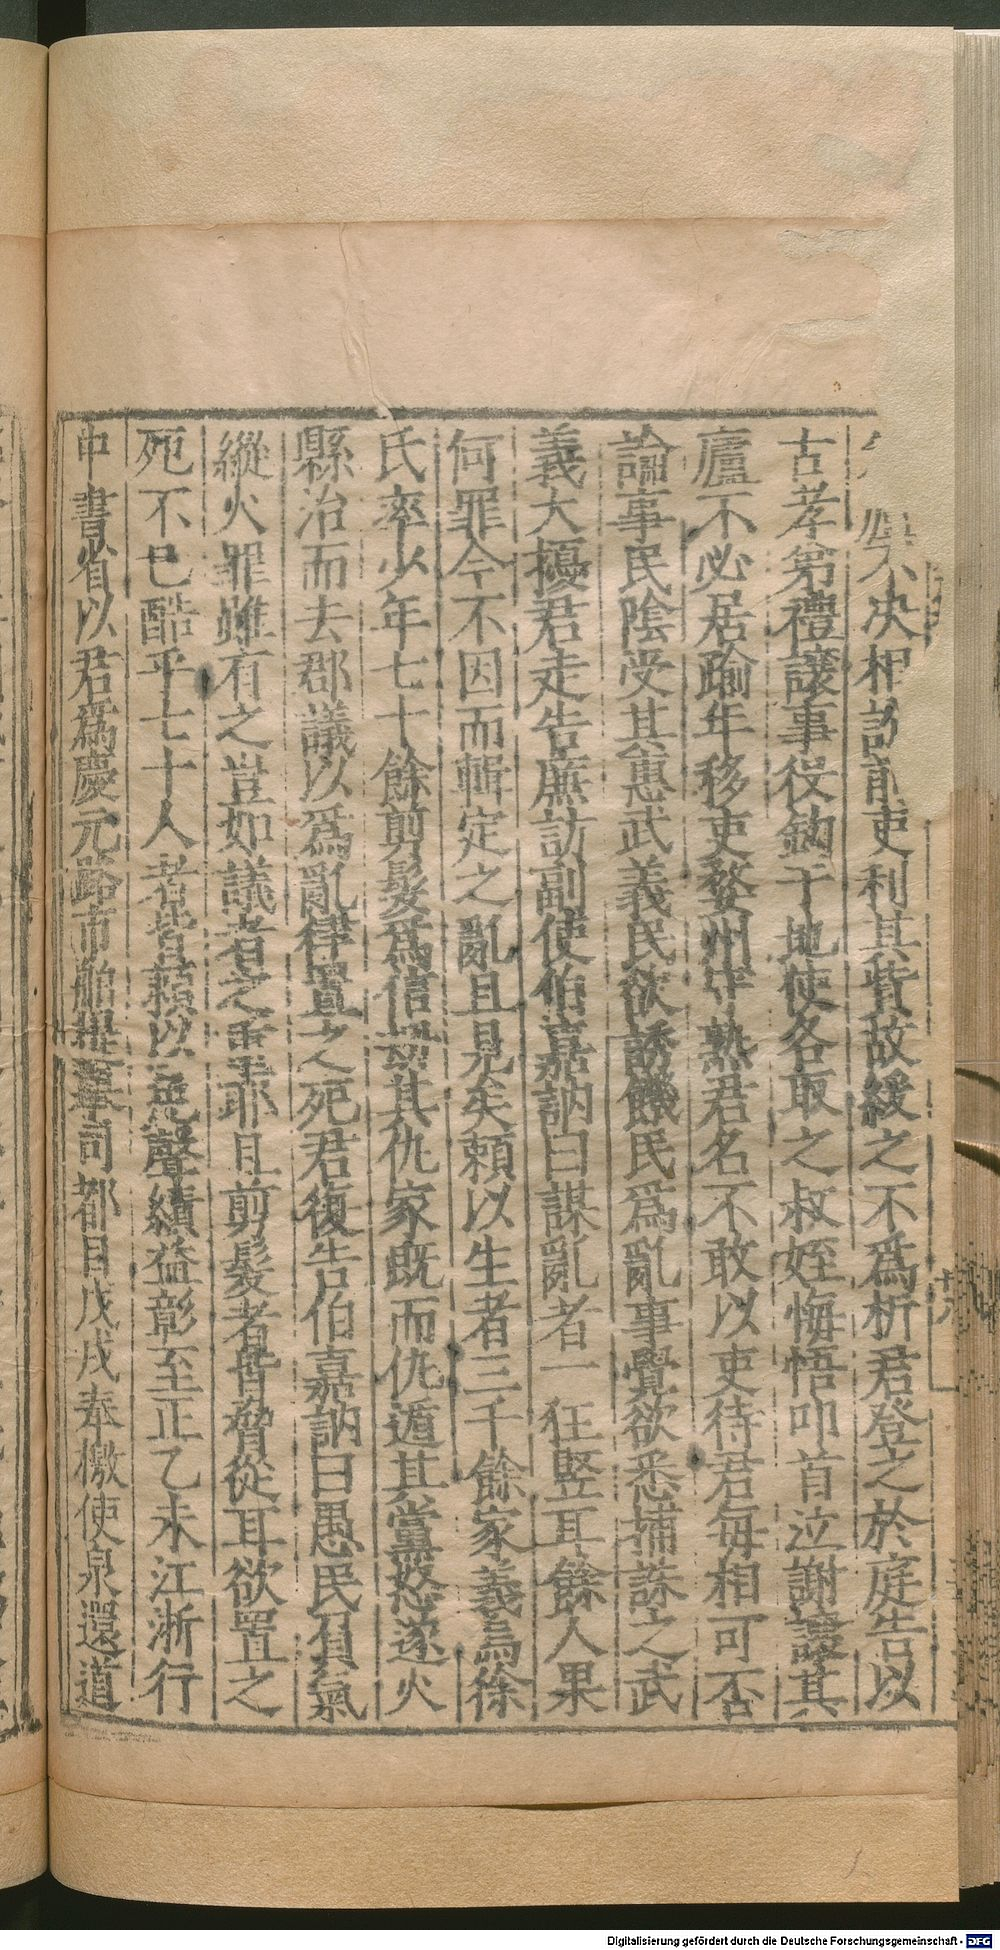 不决相訐前吏利其貲故緩之不爲析君登之於庭告以
古孝第禮讓事役鈎于地使各取之叔姪悔悟叩首泣謝讓其
廬不必居踰年移吏婺州守熟君名不敢以吏待君每相可否
論事民陰受其惠武義民欲誘饑民爲亂事覺欲悉捕誅之武
義大擾君走告廉訪副使伯嘉訥曰謀亂者一狂竪耳餘人果
何罪今不因而輯定之亂且見矣頼以生者三千餘家義烏徐
氏率少年七十餘剪髮爲信刼其仇家既而仇遁其黨怒遂火
縣治而去郡議以爲亂律置之死君復告伯嘉訥曰愚民負氣
縱火罪雖有之豈如議者之重耶且剪髮者皆脅從耳欲置之
死不已酷乎七十人者皆頼以免聲績益彰至正乙未江浙行
中書省以君爲慶元路市舶提舉司都目戊戌奉檄使泉還道
Digitalisierung gefördert durch die Deutsche Forschungsgemeinschaft - DFG